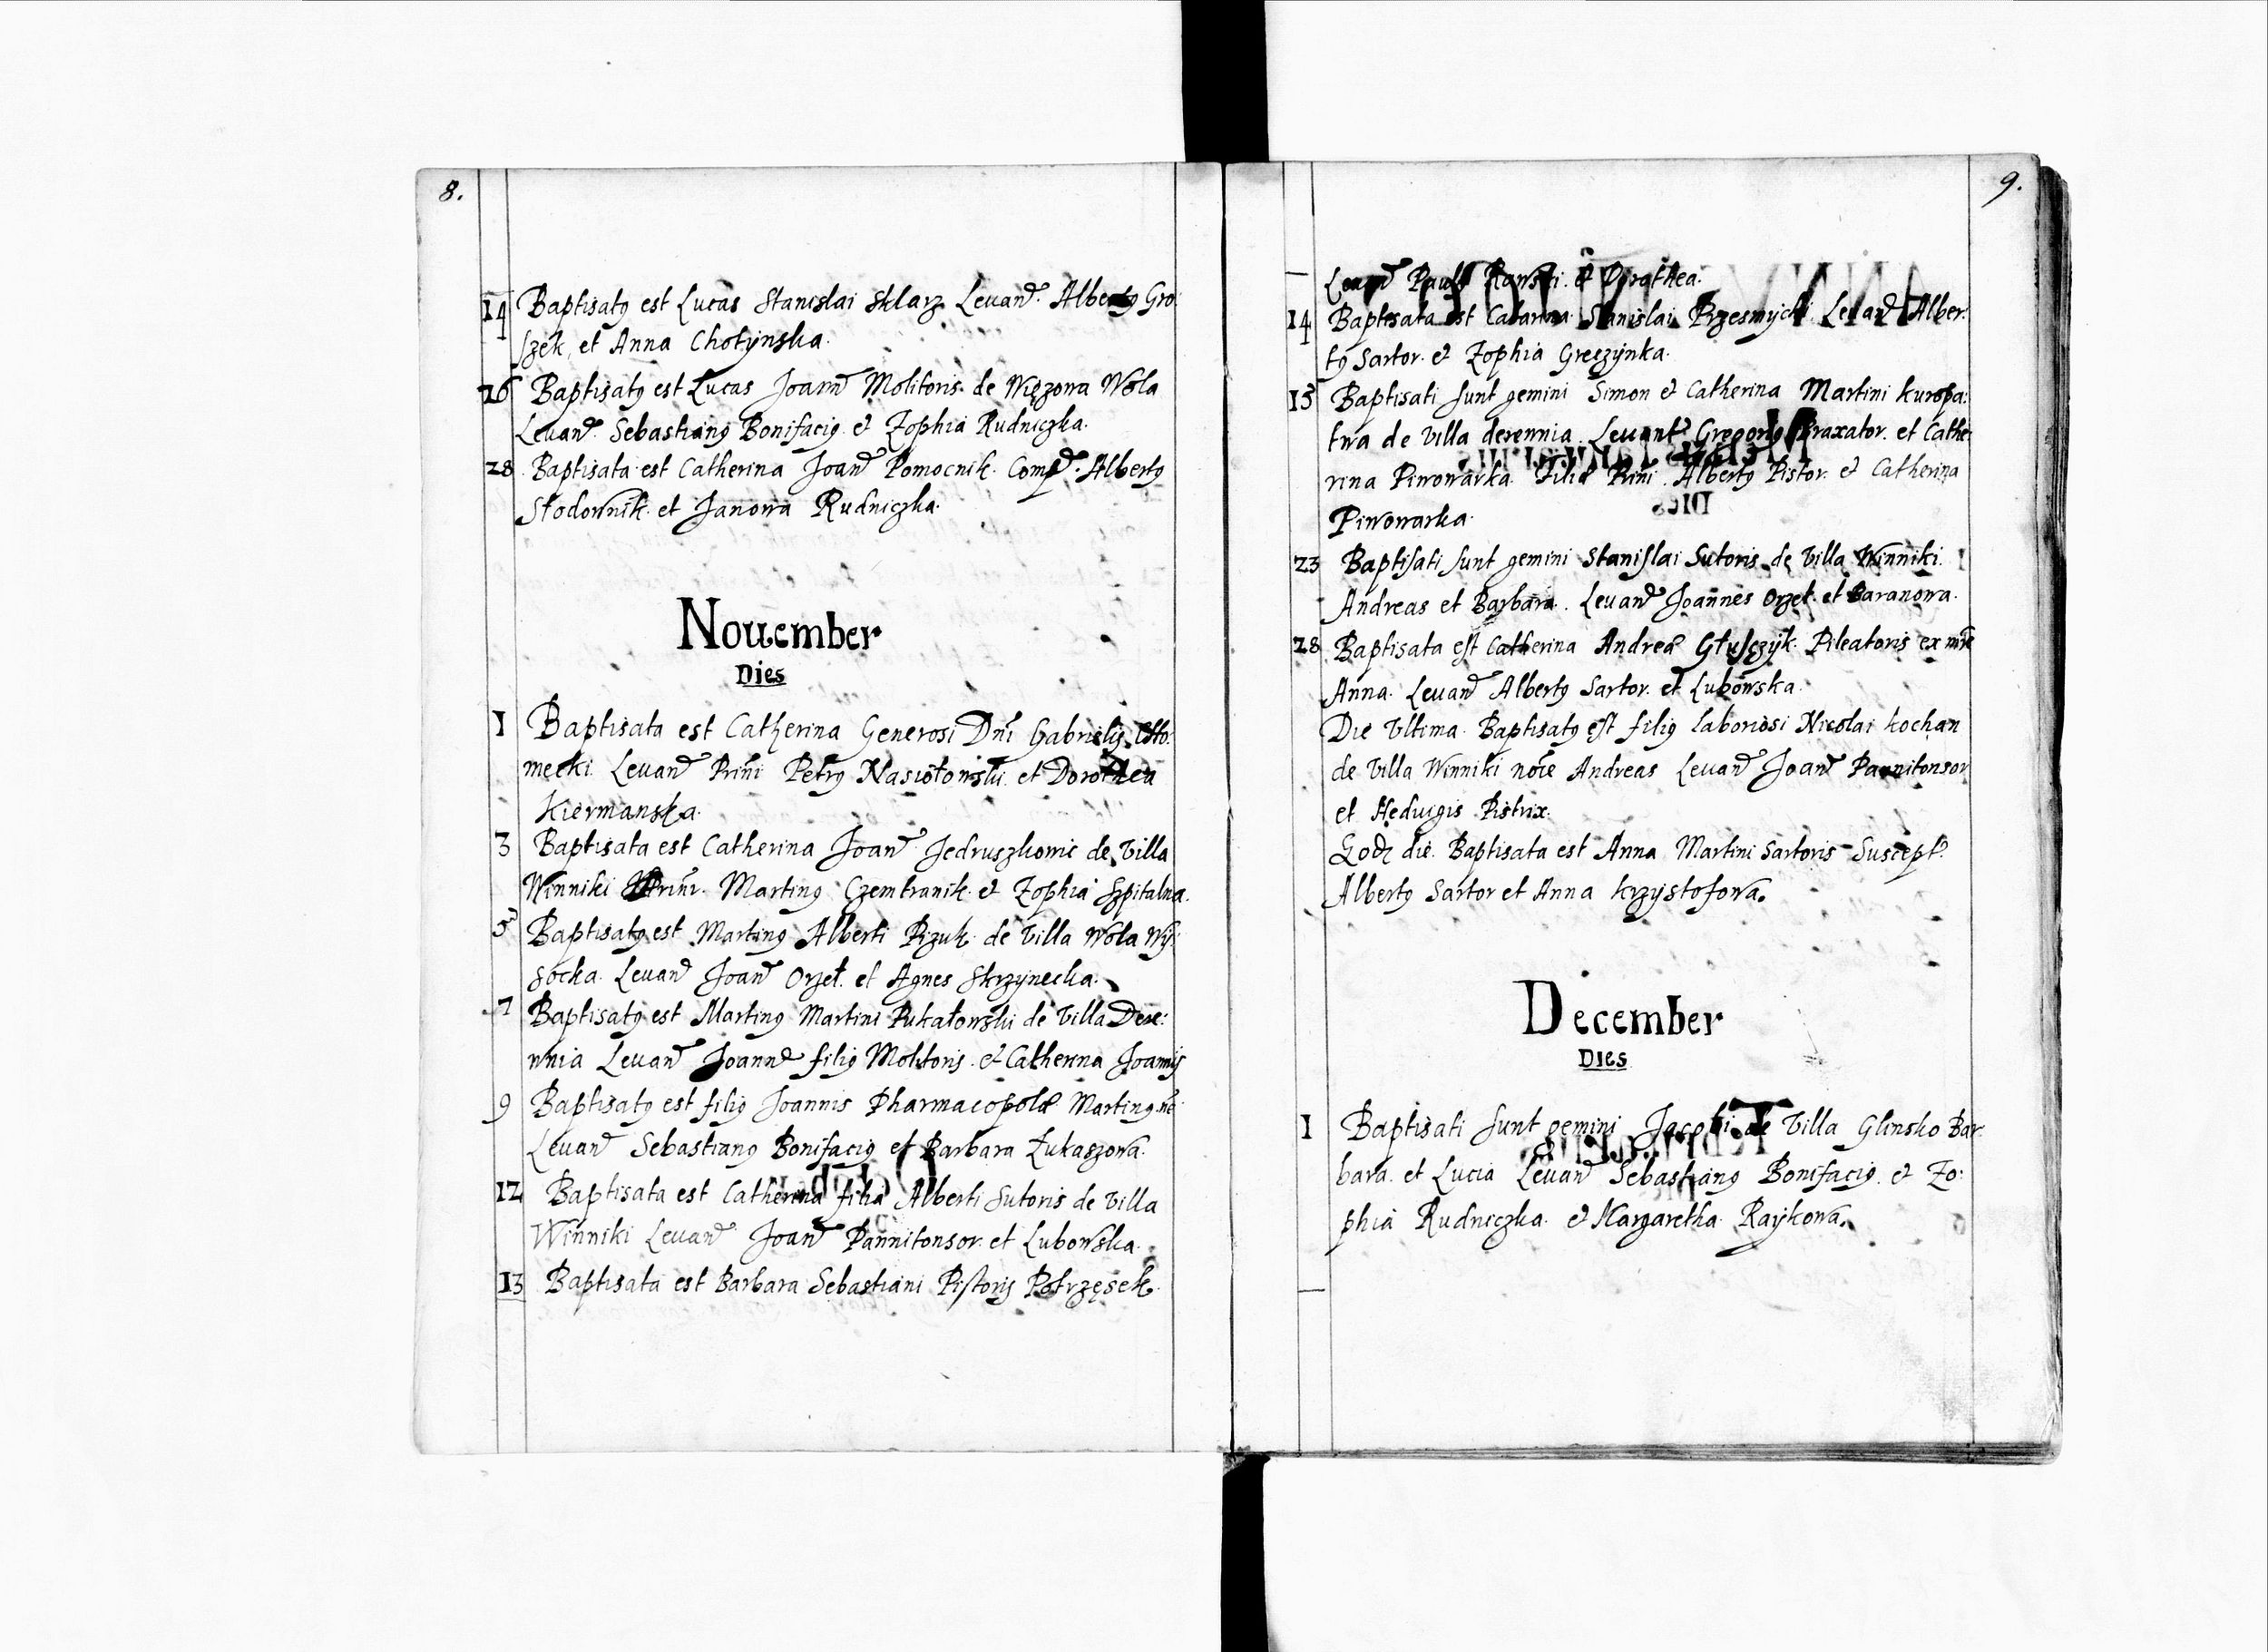 8.
14 Baptisatꝰ est Lucas Stanislai Sklarz Leuand. Albertꝰ Gro:
szek, et Anna Chotynska.
26 Baptisatꝰ est Lucas Joann Molitoris de Więzowa Wola
Leuand. Sebastianꝰ Bonifaciꝰ et Zophia Rudniczka.
28 Baptisata est Catherina Joan Pomocnik. Comp. Albertꝰ
Słodownik et Janowa Rudniczka.
Nouember
Dies
1 Baptisata est Catherina Generosi Dni Gabrielis
mecki. Leuand Prini Petrꝰ et Dorothea
Kiermanska.
3 Baptisata est Catherina Joan Jedruszkowic de Villa
Winniki Martinꝰ Czemranik et Zophia Szpitalna.
5 Baptisatꝰ est Martinꝰ Alberti Pizuk de Villa Wola Wy:
socka. Leuand Joan Orzeł. et Agnes Skrzynecka.
7 Baptisatꝰ est Martinꝰ Martini Pukałowski de Villa Dere:
wnia Leuand Joann filiꝰ Molitoris et Catherina Joannis
9 Baptisatꝰ est filiꝰ Joannis Pharmacopolæ Martinꝰ ne
Leuand Sebastianꝰ Bonifaciꝰ et Barbara Łukaszowa.
12 Baptisata est Catherina filia Alberti Sutoris de Villa
Winniki Leuand Joan Pannitonsor et Lubowska.
13 Baptisata est Barbara Sebastiani Pistoris Potrzęsek.
9.
Leuand Paulꝰ Rawski. et Dorothea.
14 Baptisata est Catarina Stanislai Przesmycki Leuand Alber:
tꝰ Sartor. et Zophia Greczynka.
15 Baptisati sunt gemini Simon et Catherina Martini kuropa:
twa de Villa derewnia. Leuant Gregoriꝰ Braxator. et Cathe:
rina Piwowarka. Filiæ Prini Albertꝰ Pistor. et Catherina
Piwowarka.
23 Baptisati sunt gemini Stanislai Sutoris de Villa Winniki.
Andreas et Barbara. Leuand Joannes Orzeł et Baranowa.
28 Baptisata est Catherina Andreæ Głusczyk. Pileatoris ex mre
Anna. Leuand Albertꝰ Sartor. et Lubowska.
Die Vltima. Baptisatꝰ est filiꝰ laboriosi Nicolai kochan
de Villa Winniki noie Andreas Leuand Joan Pannitonsor
et Heduigis Pistrix.
Eodē die. Baptisata est Anna Martini Sartoris Suscept.
Albertꝰ Sartor et Anna krzystofowa.
December
Dies
1 Baptisati sunt gemini Jacobi de Villa Glinsko Bar:
bara. et Lucia Leuand Sebastianꝰ Bonifaciꝰ. et Zo:
phia Rudniczka. et Margaretha Raykowa.